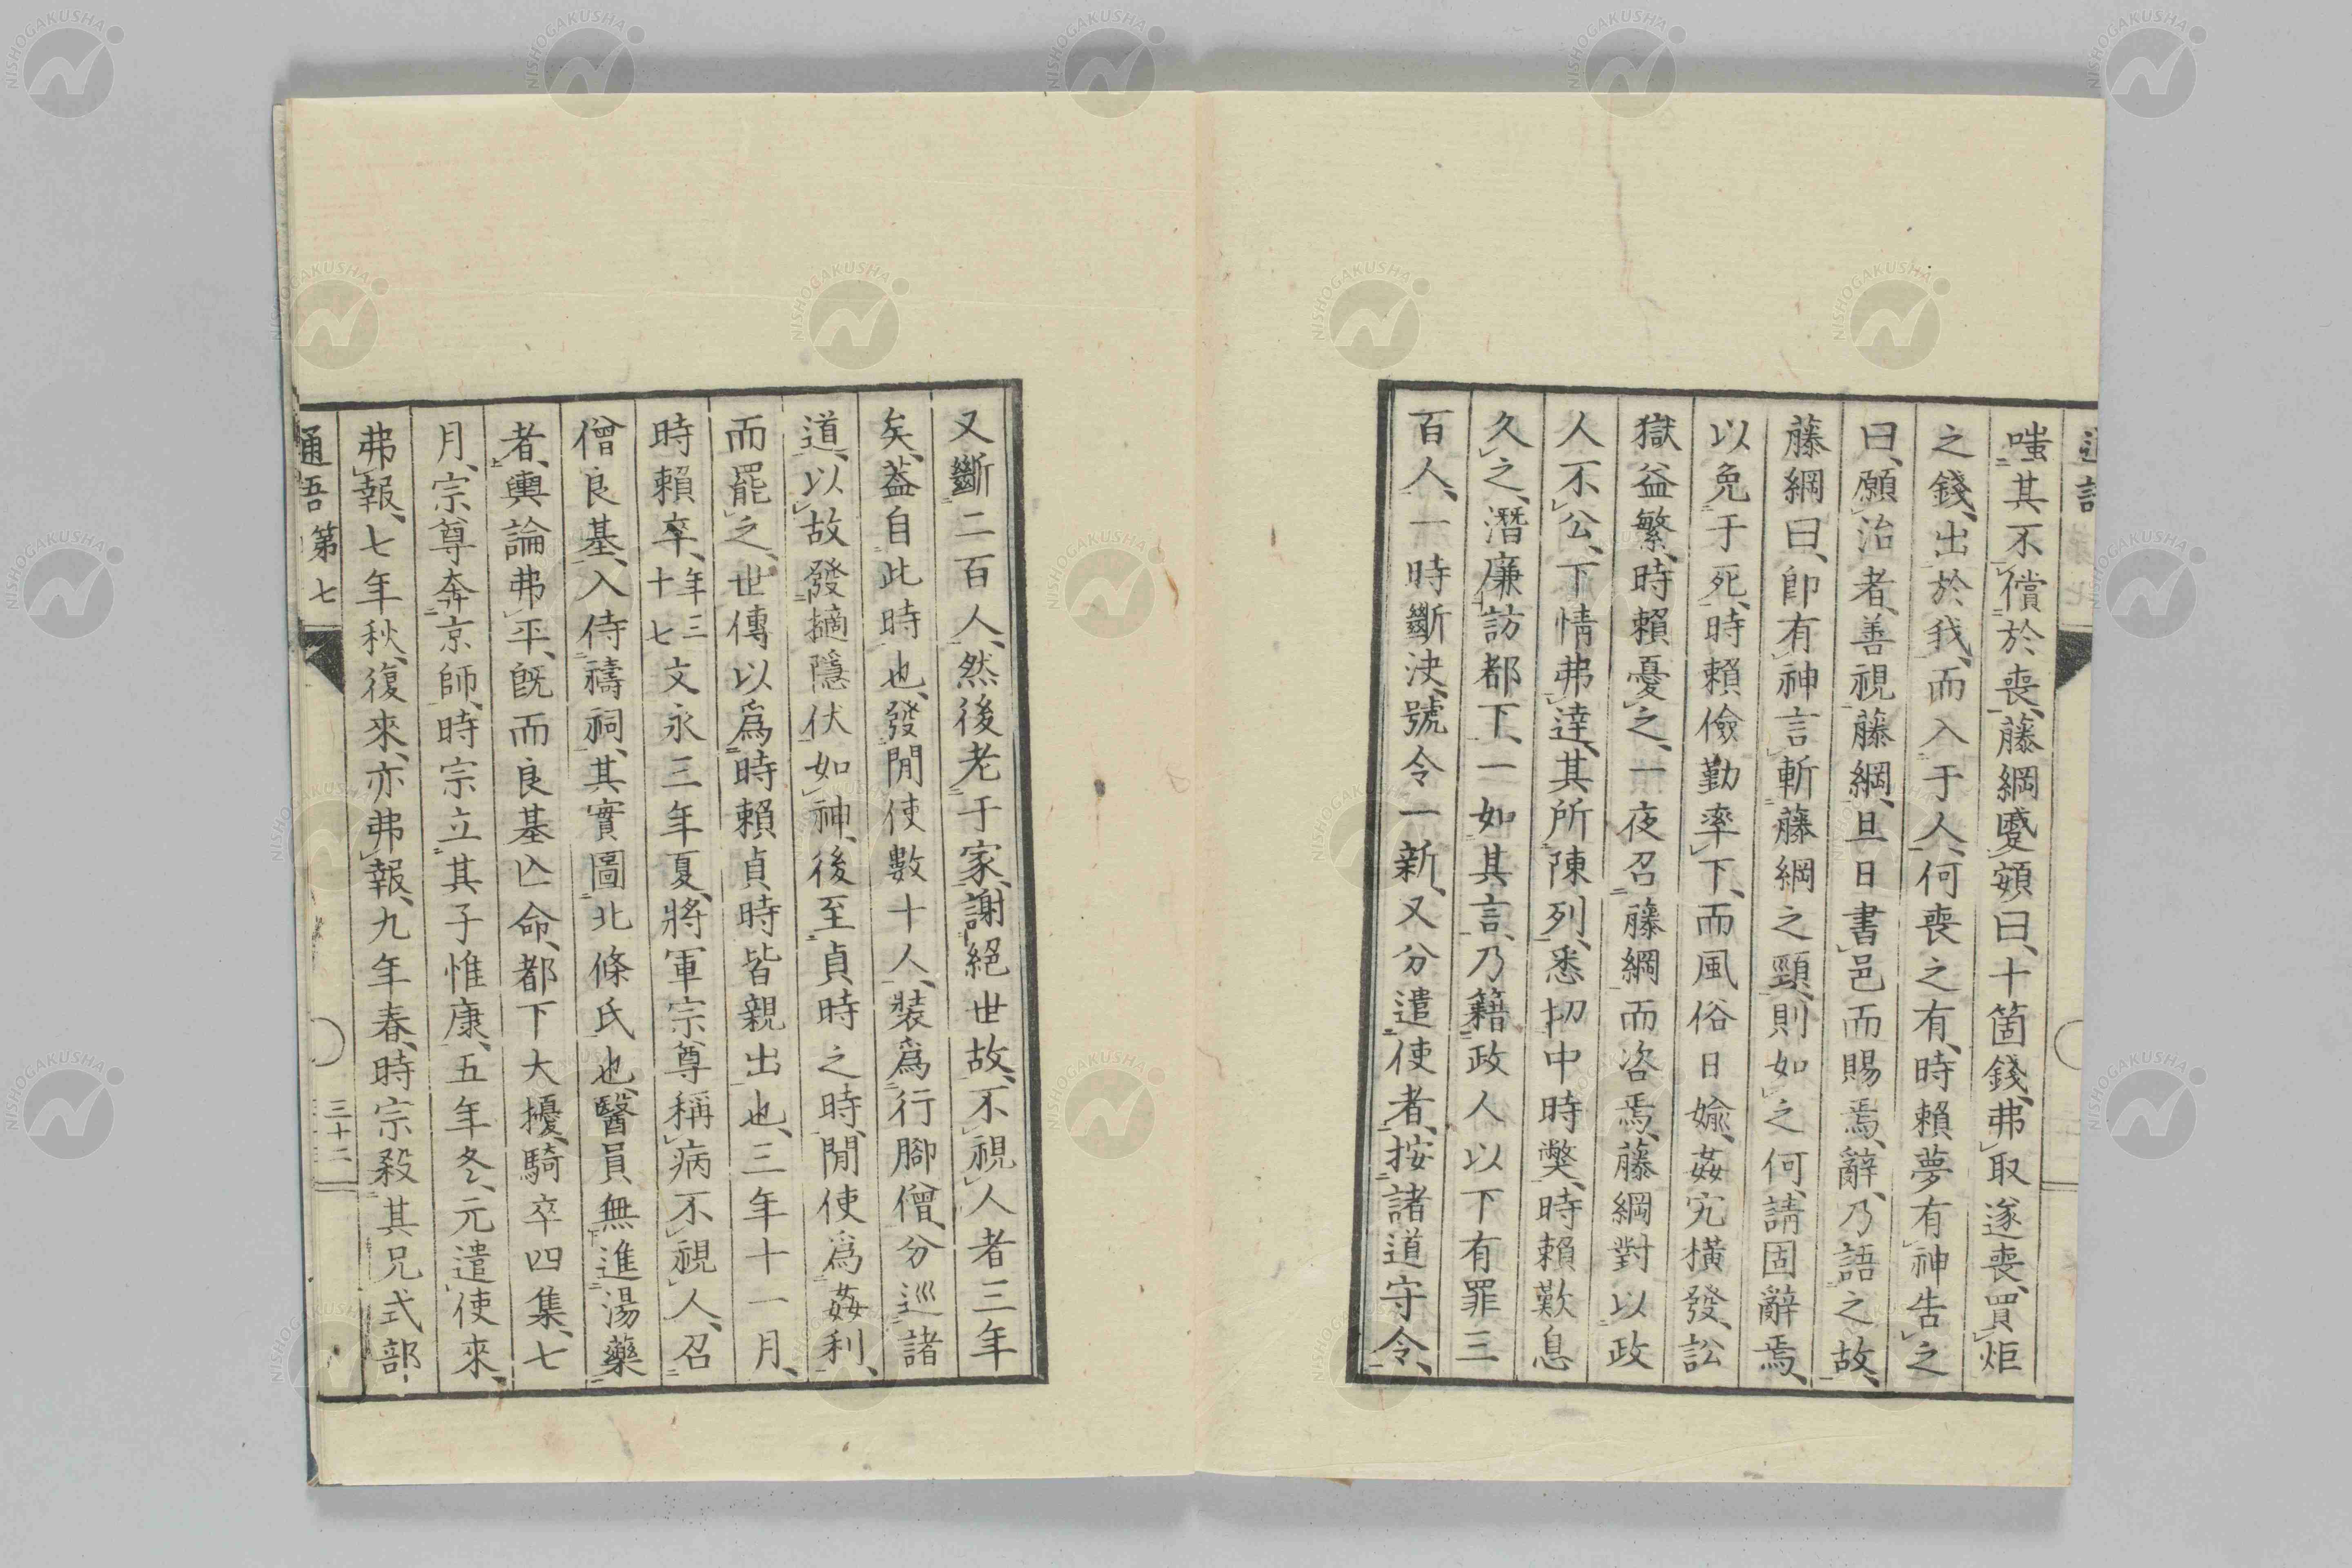 嗤其不償於喪、藤綱蹙頞曰、十箇錢、弗取遂喪、買炬
之錢、出於我、而入于人、何喪之有、時賴夢有神告之
曰、願治者、善視藤綱、旦日書邑而賜焉、辭、乃語之故、
藤綱曰、卽有神言、斬藤綱之頸、則如之何、請固辭焉、
以免于死、時賴儉勤率下、而風俗日婾、姦宄橫發、訟
獄益繁、時賴憂之、一夜召藤綱而咨焉、藤綱對以政
人不公、下情弗達、其所陳列、悉切中時獘、時賴歎息
久之、潛廉訪都下、一如其言、乃籍政人以下有罪三
百人、一時斷決、號令一新、又分遣使者、按諸道守令、
又斷二百人、然後老于家、謝絕世故、不視人者三年
矣、葢自此時也、發閒使數十人、裝爲行腳僧、分巡諸
道、以故發擿隱伏如神、後至貞時之時、閒使爲姦利、
而罷之、世傳以爲時賴貞時皆親出也、三年十一月、
時賴卒、年三十七文永三年夏、將軍宗尊稱病不視人、召
僧良基、入侍禱祠、其實圖北條氏也、醫員無進湯藥
者、輿論弗平、旣而良基亾命、都下大擾、騎卒四集、七
月、宗尊奔京師、時宗立其子惟康、五年冬、元遣使來、
弗報、七年秋、復來、亦弗報、九年春、時宗殺其兄式部
通語第七
三十二
NISHOGAKUSHA